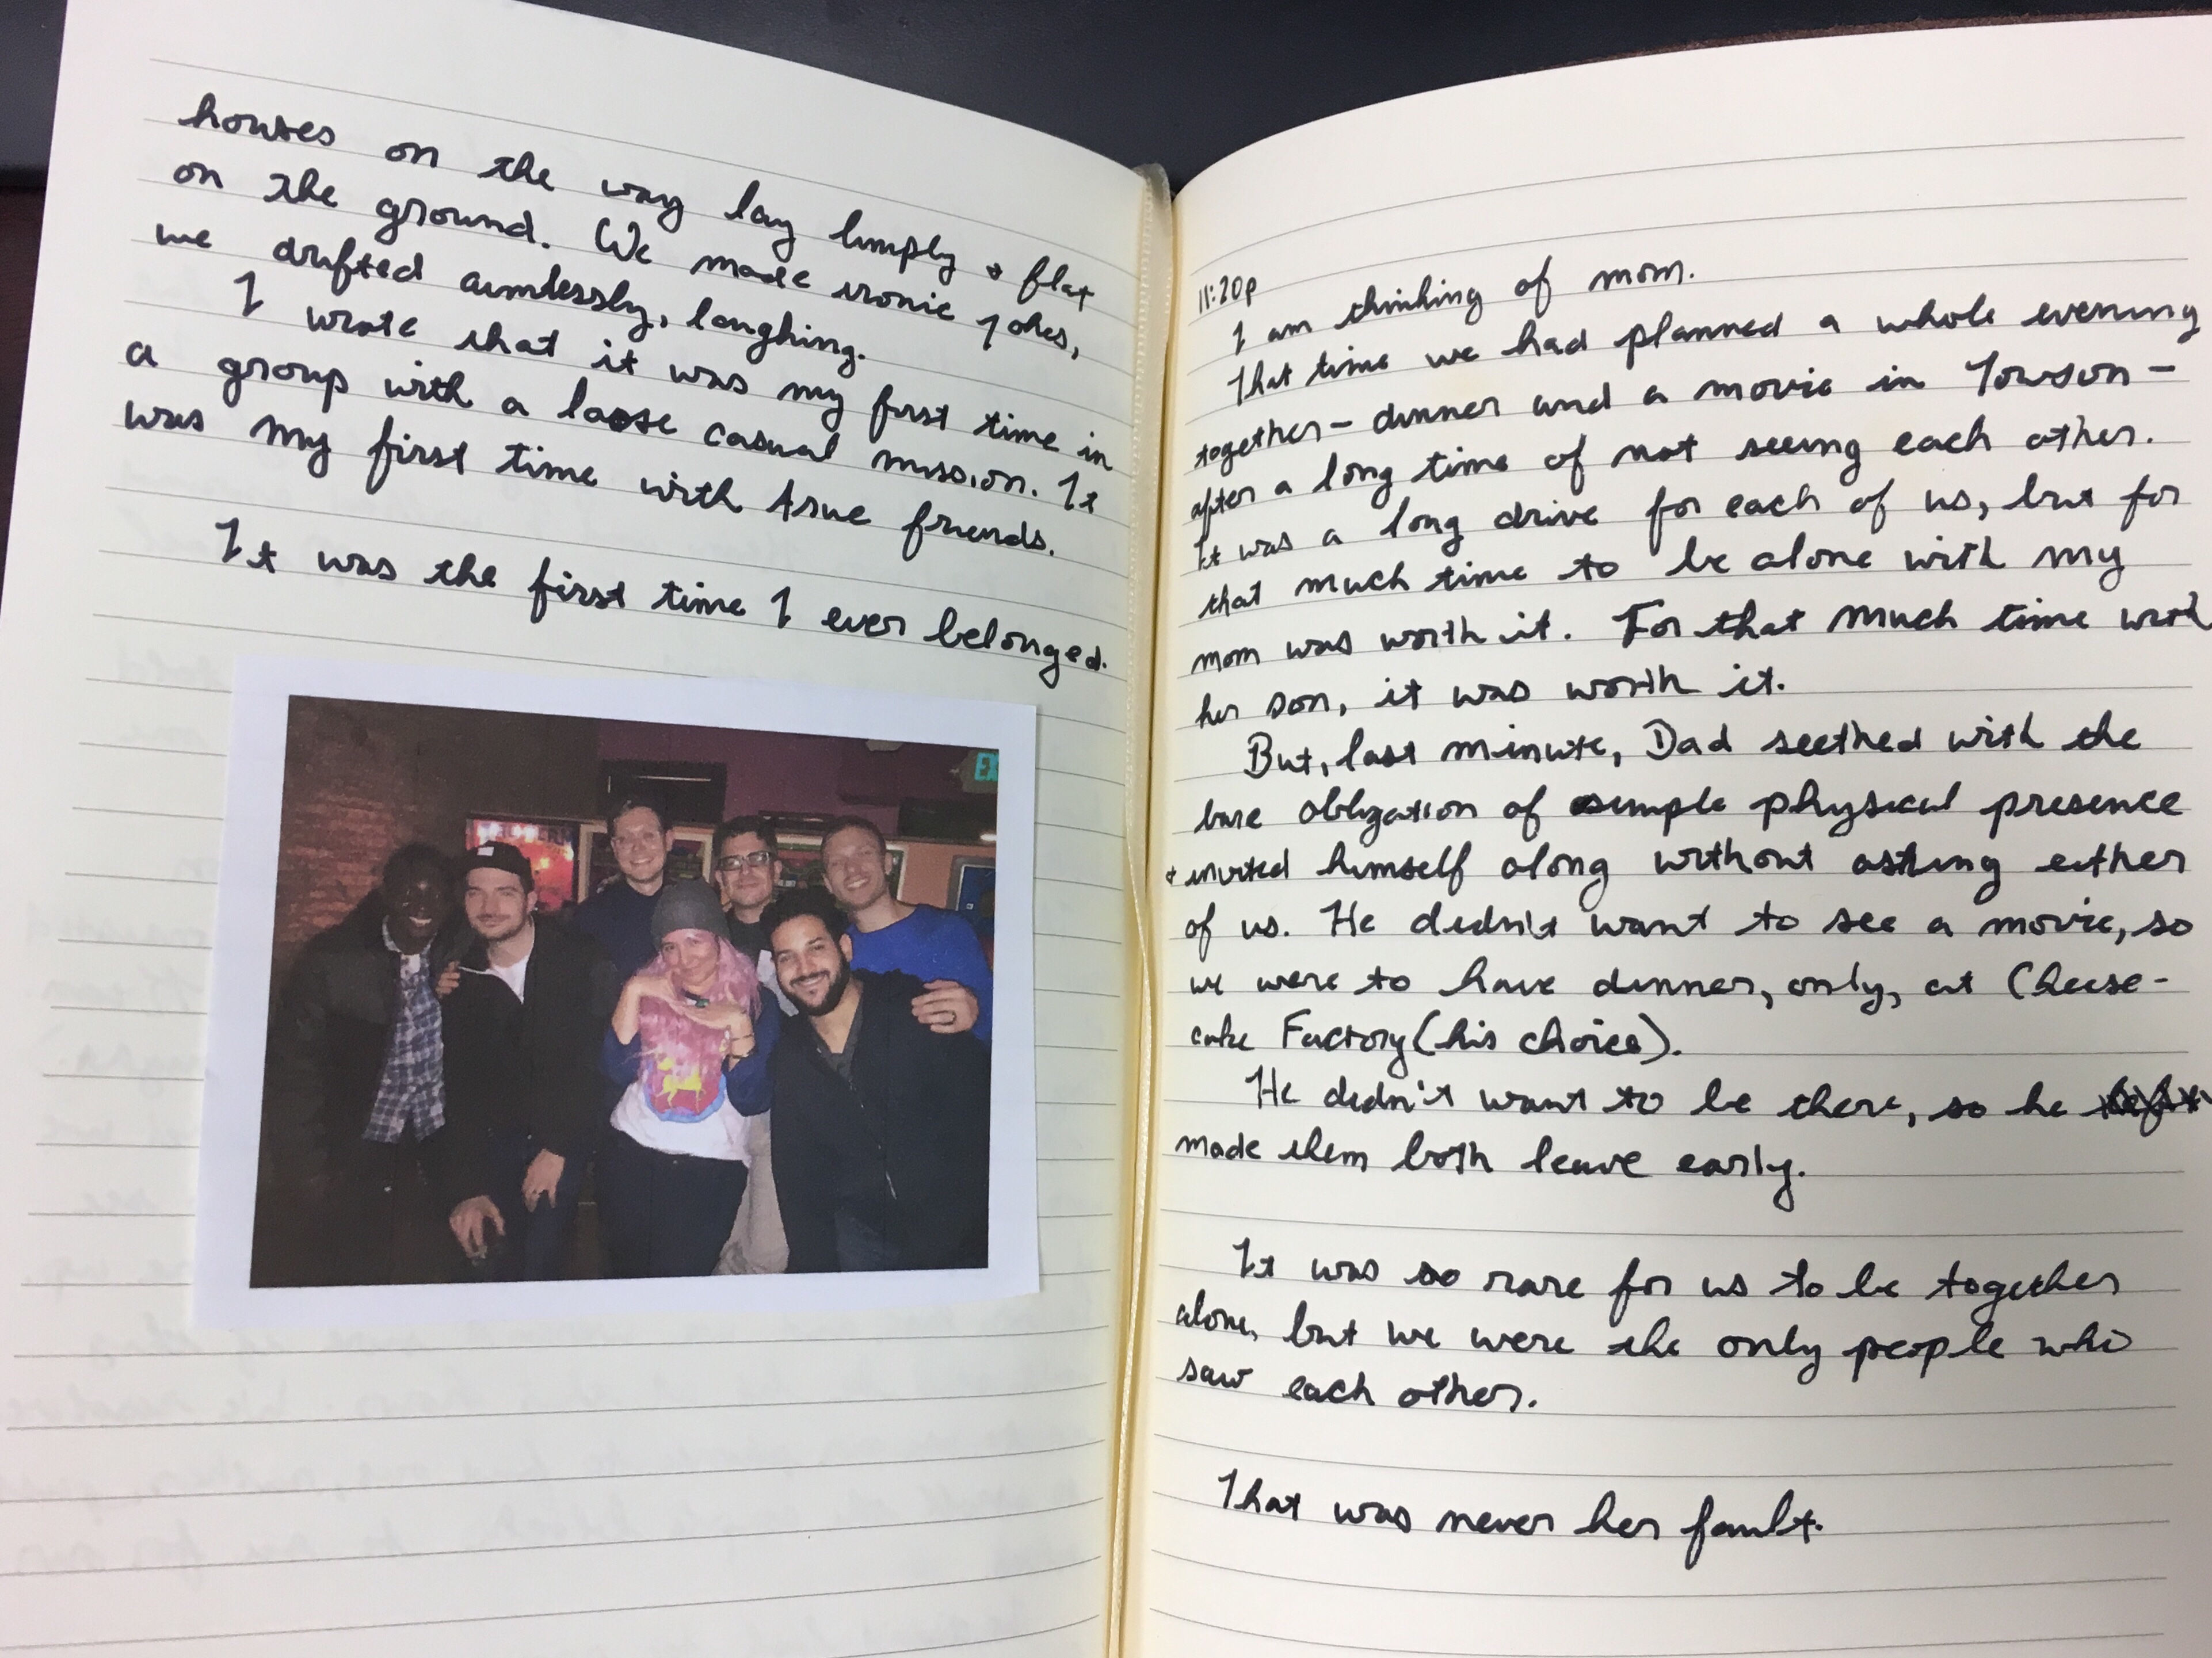 houses on the way lay limply + flat
on the ground. We made ironic jokes,
we drifted aimlessly, laughing.
I wrote that it was my first time in
a group with a loose casual mission. It
was my first time with true friends.
It was the first time I ever belonged.
EX
11:20p
I am thinking of mom.
That time we had planned a whole evening
together - dinner and a movie in Towson -
after a long time of not seeing each other.
It was a long drive for each of us, but for
that much time to be alone with my
mom was worth it. For that much time with
her son, it was worth it.
But, last minute, Dad seethed with the
bare obligation of simple physical presence
+ invited himself along without asking either
of us. He didn't want to see a movie, so
we were to have dinner, only, at Cheese-
cake Factory (his choice).
He didn't want to be there, so he
made them both leave early.
It was so rare for us to be together
alone, but we were the only people who
saw each other.
That was never her fault.